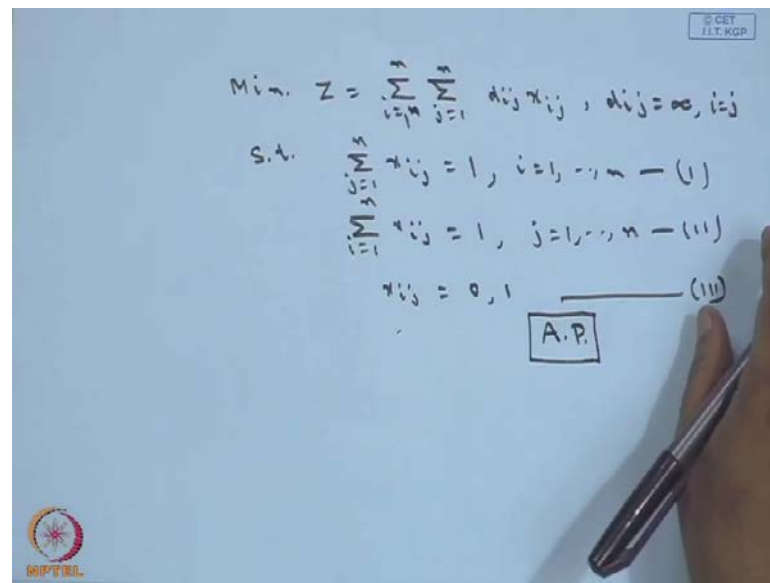 © CET
I.I.T. KGP
Min. Z = n∑i=1 n∑j=1 dij xij , dij = ∞, i=j
S.t. n∑j=1 xij = 1, i=1, ..., n — (I)
n∑i=1 xij = 1, j=1, ..., n — (II)
xij = 0, 1 — (III)
A.P.
NPTEL